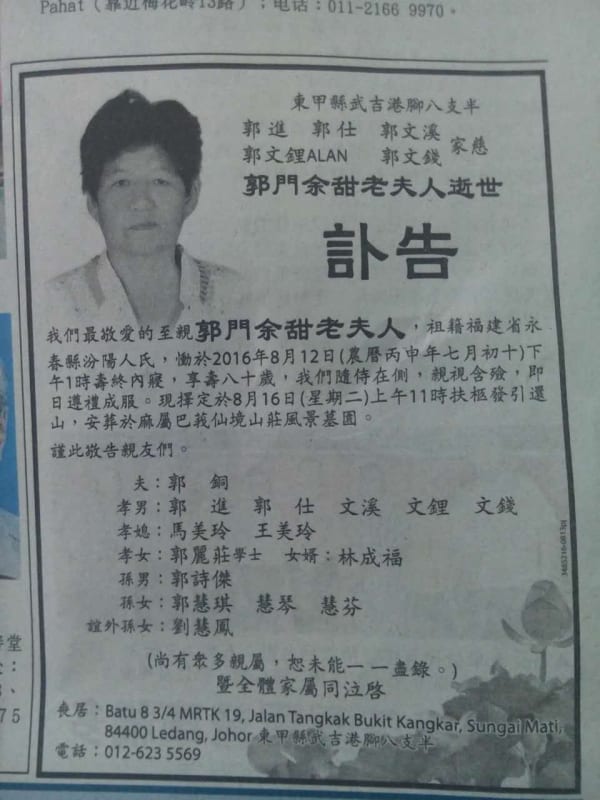 Pahat (靠近梅花岭13路)；电话：011-2166 9970。
東甲縣武吉港腳八支半
郭進 郭仕 郭文溪
郭文鋰ALAN 郭文錢 家慈
郭門余甜老夫人逝世
訃告
我們最敬愛的至親郭門余甜老夫人，祖籍福建省永
春縣汾陽人氏，慟於2016年8月12日(農曆丙申年七月初十)下
午1時壽終內寢，享壽八十歲，我們隨侍在側，親視含殮，即
日遵禮成服。現擇定於8月16日(星期二)上午11時扶柩發引還
山，安葬於麻屬巴莪仙境山莊風景墓園。
謹此敬告親友們。
夫：郭 銅
孝男：郭 進 郭 仕 文溪 文鋰 文錢
孝媳：馬美玲 王美玲
孝女：郭麗莊學士 女婿：林成福
孫男：郭詩傑
孫女：郭慧琪 慧琴 慧芬
誼外孫女：劉慧鳳
(尚有眾多親屬，恕未能一一盡錄。)
暨全體家屬同泣啓
喪居：Batu 8 3/4 MRTK 19, Jalan Tangkak Bukit Kangkar, Sungai Mati,
84400 Ledang, Johor 東甲縣武吉港腳八支半
電話：012-623 5569
堂
75